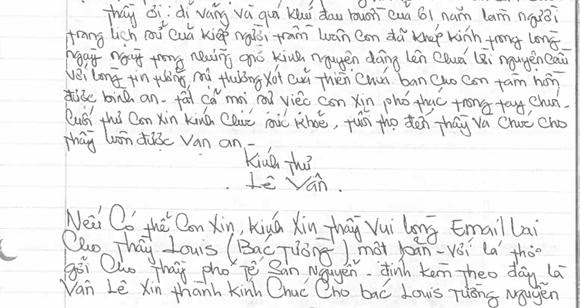 Thầy ơi: dĩ vãng và quá khứ đau buồn của 61 năm làm người
trong lịch sử của kiếp người trầm luân con đã khép kính trong lòng
ngày ngày trong những giờ kinh nguyện dâng lên Chúa lời nguyện cầu
với lòng tin tưởng sự thương xót của Thiên Chúa ban cho con tâm hồn
được bình an - tất cả mọi sự việc con xin phó thác trong tay Chúa.
Cuối thư con xin kính chúc sức khỏe, tuổi thọ đến thầy và chúc cho
thầy luôn được vạn an -
Kính thư
Lê Vân .
Nếu Có thể Con Xin, Kính Xin Thầy Vui lòng Email Lại
Cho Thầy Louis (Bác Tường) một bản - với lá thơ
gởi Cho Thầy phó tế San Nguyễn - đính kèm theo đây là
Vân Lê Xin thành Kính Chúc Cho bác Louis Tường Nguyễn